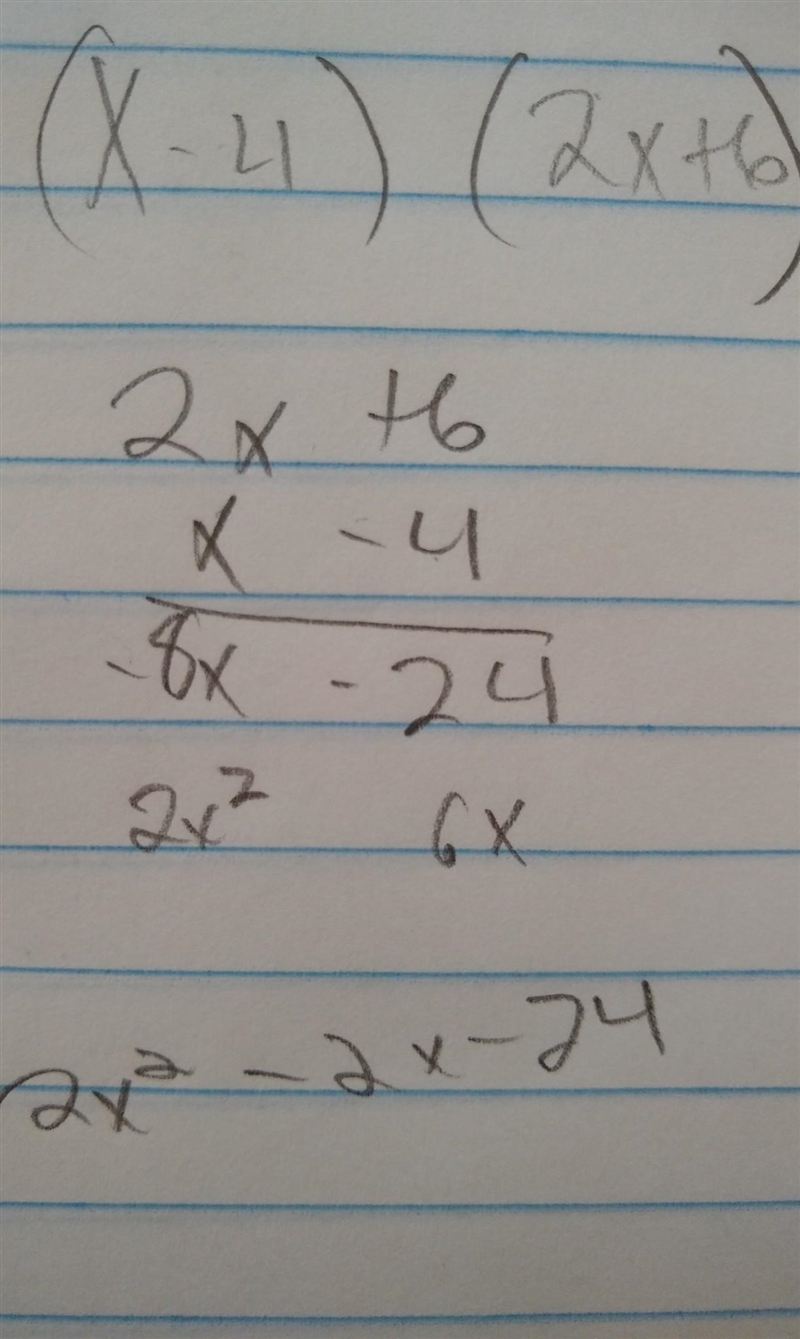 (x - 4) (2x+6)
2x +6
x - 4
-8x - 24
2x² 6x
2x² - 2x - 24